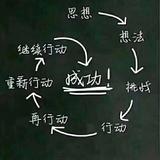 思想
想法
挑战
行动
再行动
重新行动
继续行动
成功!